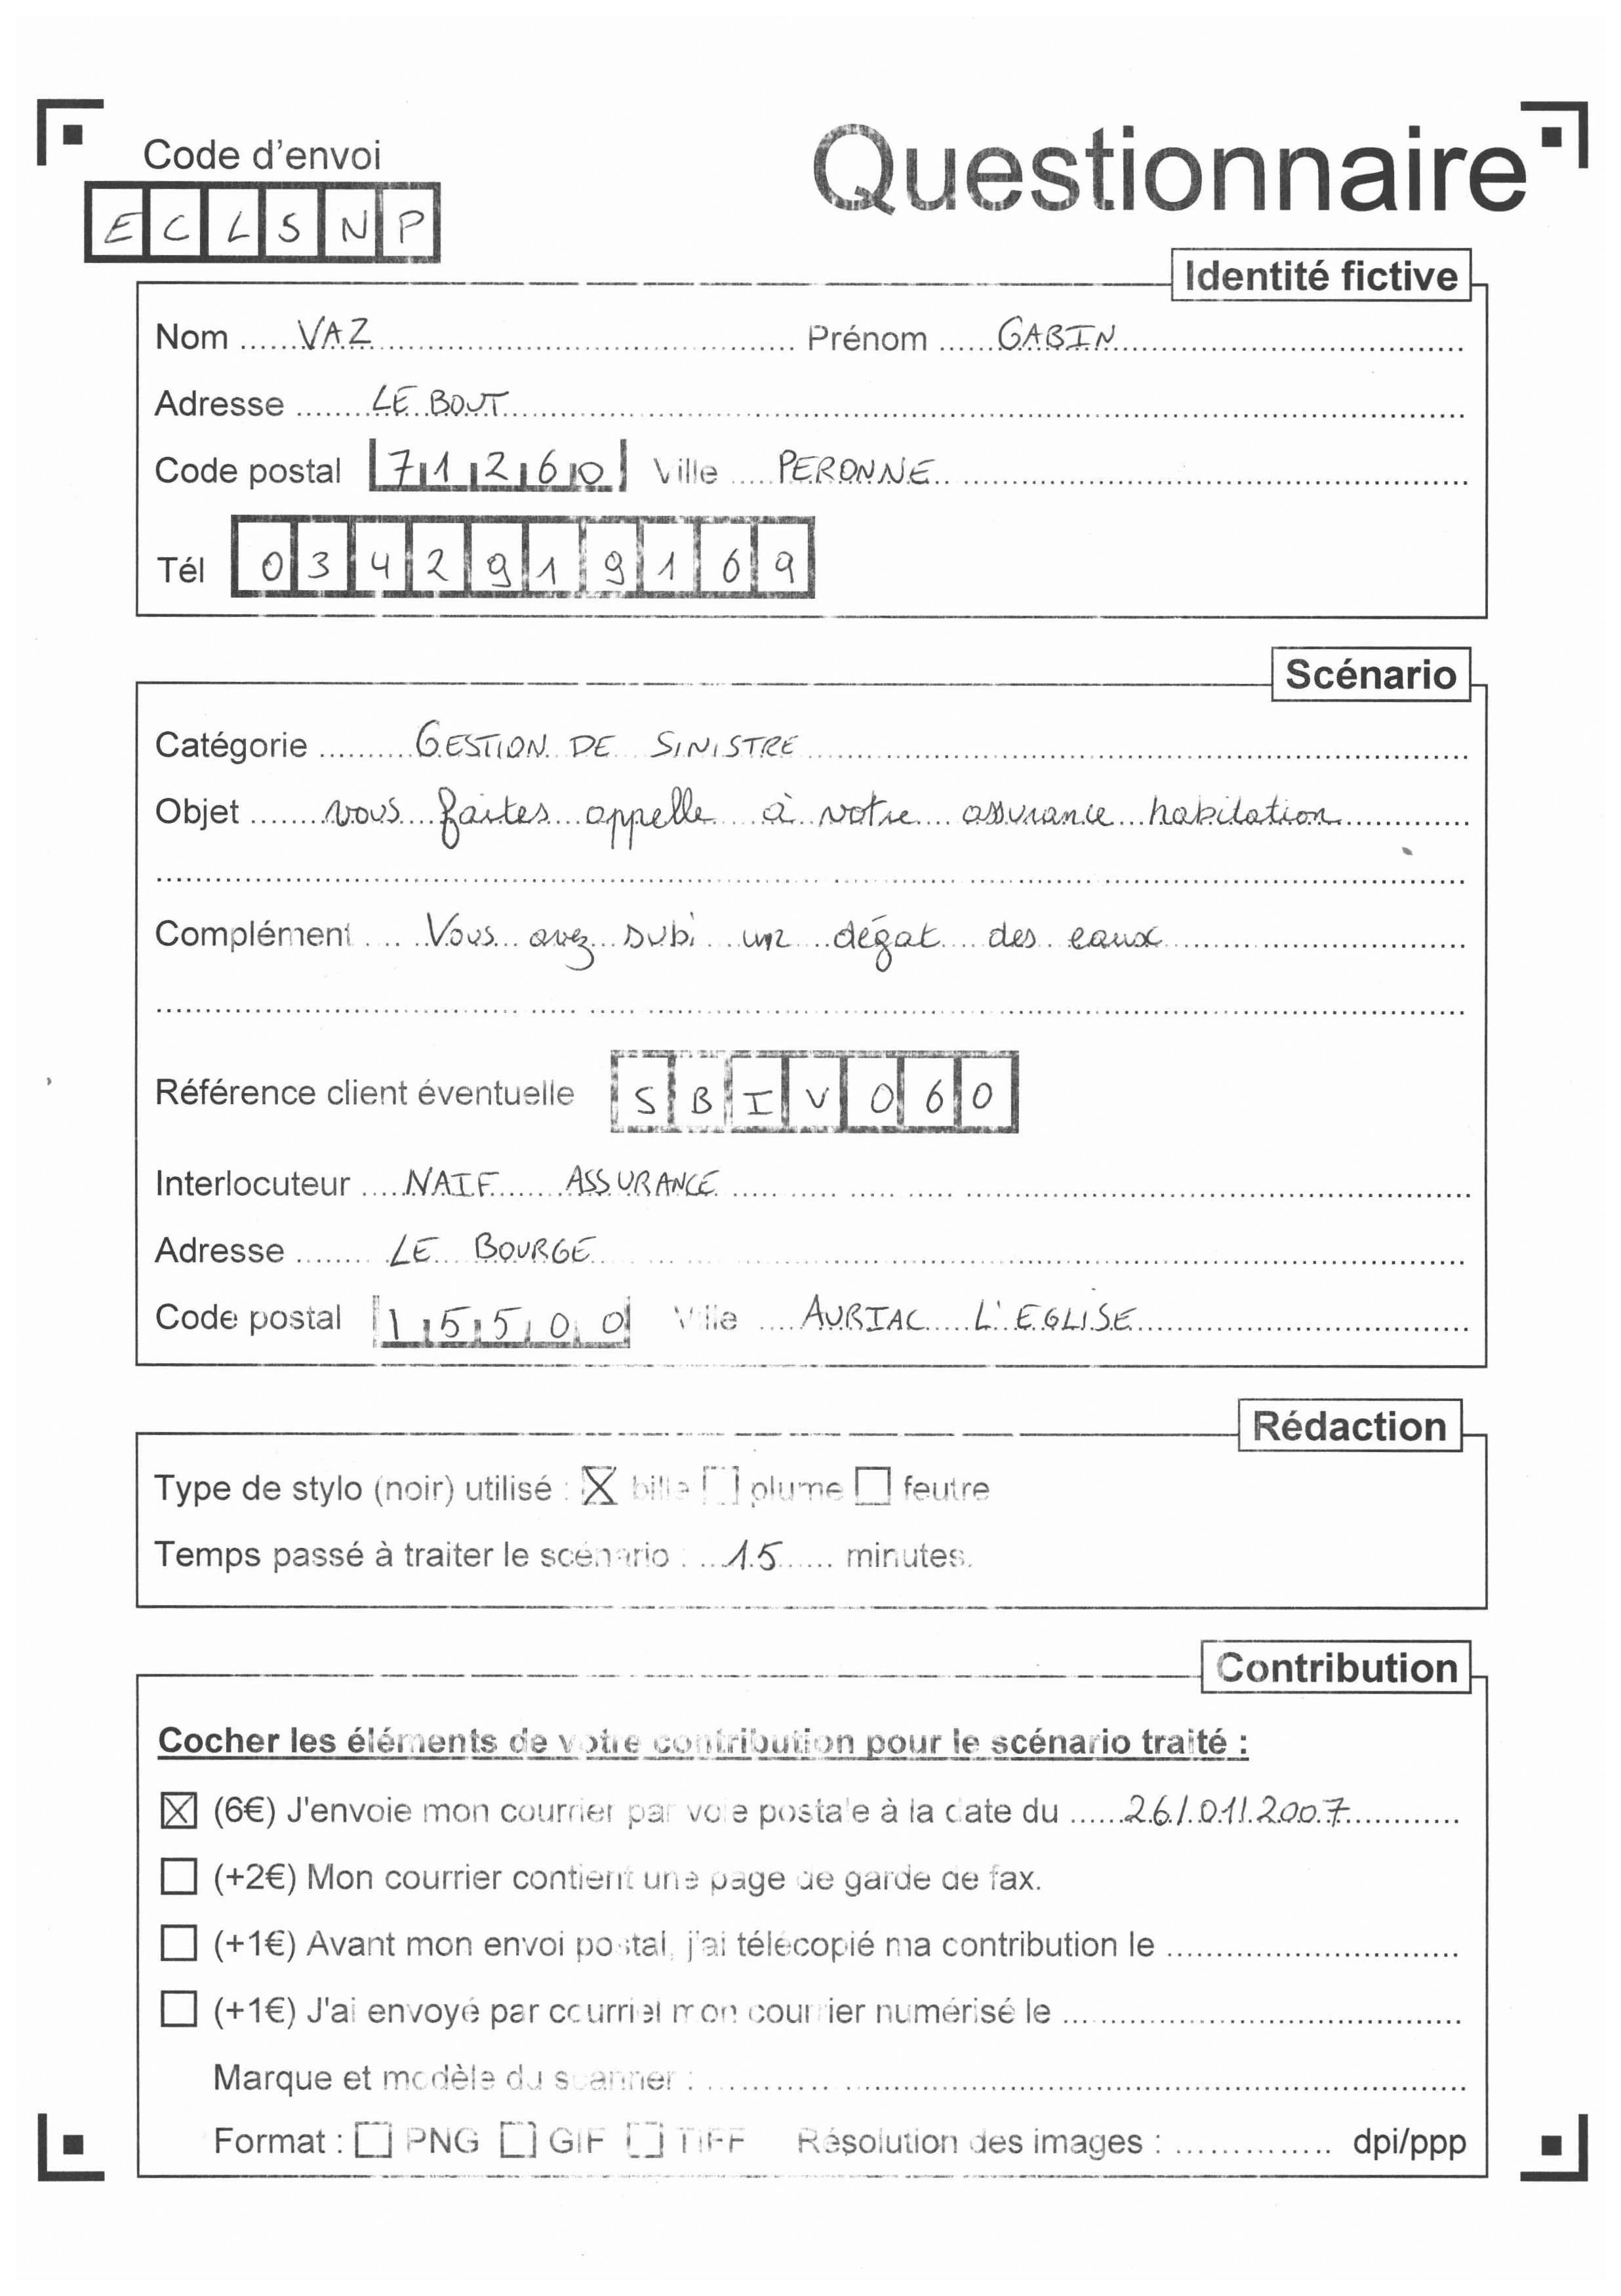 Code d'envoi
Questionnaire
ECLSNP
Identité fictive
Nom ...... VAZ ...... Prénom ...... GABIN ......
Adresse ...... LE BOUT ......
Code postal 71260 Ville ...... PERONNE ......
Tél 0342919169
Scénario
Catégorie ...... GESTION DE SINISTRE ......
Objet ...... vous faites appelle à votre assurance habitation ......
Complément ...... Vous avez subi un dégat des eaux ......
Référence client éventuelle SBIV060
Interlocuteur ...... NAIF ASSURANCE ......
Adresse ...... LE BOURGE ......
Code postal 15500 Ville ...... AURIAC L'EGLISE ......
Rédaction
Type de stylo (noir) utilisé : ☒ bille ☐ plume ☐ feutre
Temps passé à traiter le scénario : ...15...... minutes.
Contribution
Cocher les éléments de votre contribution pour le scénario traité :
☒ (6€) J'envoie mon courrier par voie postale à la date du ...... 26/01/2007 ......
☐ (+2€) Mon courrier contient une page de garde de fax.
☐ (+1€) Avant mon envoi postal, j'ai télécopié ma contribution le ......
☐ (+1€) J'ai envoyé par courriel mon courrier numérisé le ......
Marque et modèle du scanner : ......
Format : ☐ PNG ☐ GIF ☐ TIFF Résolution des images : ...... dpi/ppp